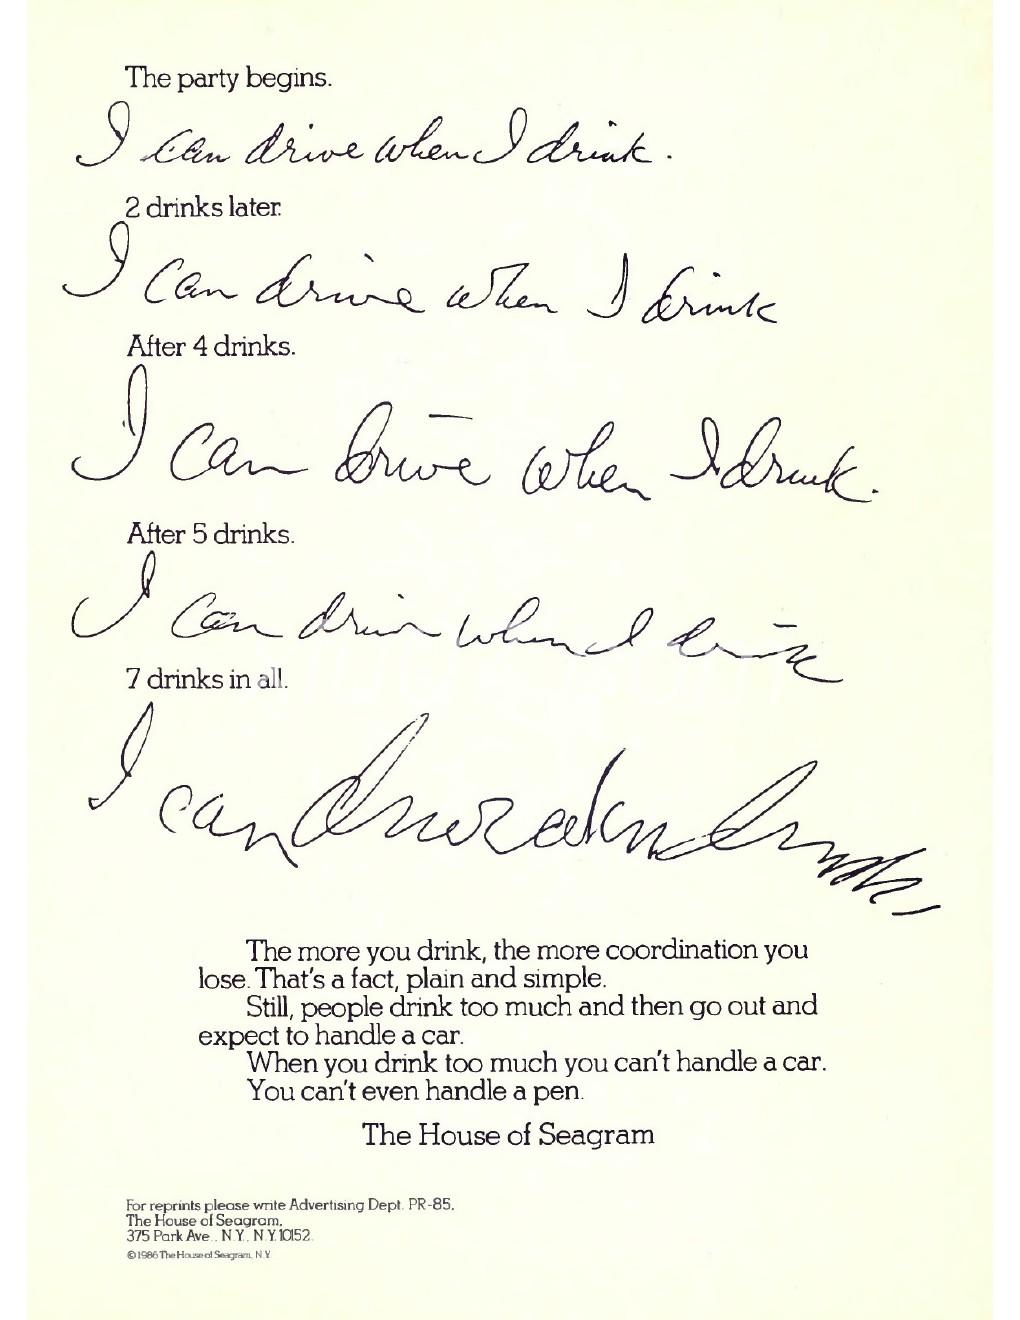 The party begins.
I can drive when I drink.
2 drinks later.
I can drive when I drink
After 4 drinks.
I can drive when I drink.
After 5 drinks.
I can driv when I drink
7 drinks in all.
I can
The more you drink, the more coordination you
lose. That's a fact, plain and simple.
Still, people drink too much and then go out and
expect to handle a car.
When you drink too much you can't handle a car.
You can't even handle a pen.
The House of Seagram
For reprints please write Advertising Dept. PR-85,
The House of Seagram,
375 Park Ave., N.Y., N.Y. 10152.
©1986 The House of Seagram, N.Y.